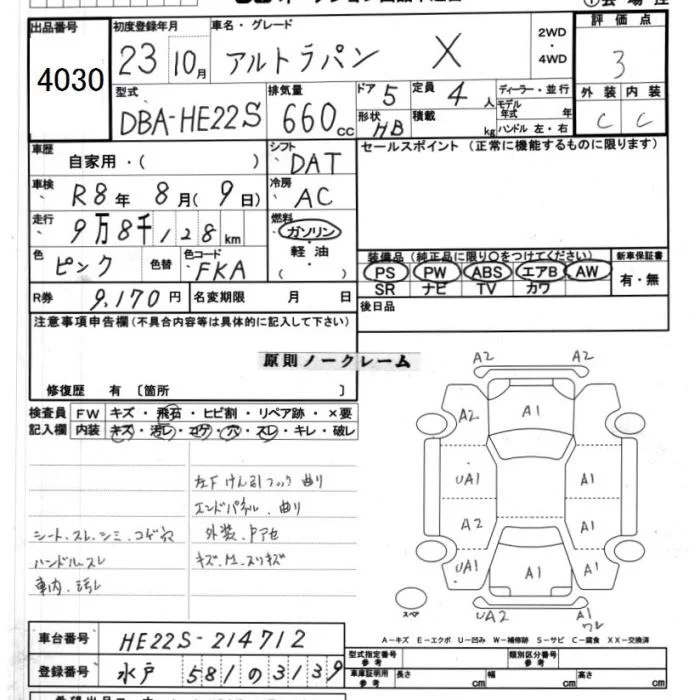 出品番号
4030
初度登録年月
23 10月
車名・グレード
アルトラパン X
2WD
・
4WD
評価点
3
型式
DBA-HE22S
排気量
660 cc
ドア 5
定員 4 人
形状 HB
積載 kg
ディーラー・並行
モデル年式 年
ハンドル 左・右
外装 内装
C C
車歴
自家用・( )
シフト
DAT
セールスポイント (正常に機能するものに限ります)
車検
R8年 8月( 9日)
冷房
AC
走行
9万8千128km
燃料
ガソリン
・
軽油
( )
色
ピンク
色替
色コード
FKA
装備品(純正品に限り○をつけてください)
PS PW ABS エアB AW
SR ナビ TV カワ
新車保証書
有・無
R券 9,170円
名変期限 月 日
後日品
注意事項申告欄(不具合内容等は具体的に記入して下さい)
原則ノークレーム
修復歴 有 〔箇所 〕
検査員
記入欄
FW キズ・飛石・ヒビ割・リペア跡・×要
内装 キズ・汚レ・コゲ・穴・スレ・キレ・破レ
左下けん引フック 曲り
エンドパネル、曲り
シート、スレ、シミ、コゲ穴
外装、Pアセ
ハンドル、スレ
車内、汚レ
A2 A2
A2 A1
UA1 A1
A2 A1
UA1 A1 A1
UA2 A1
ワレ
スペア
A−キズ E−エクボ U−凹み W−補修跡 S−サビ C−腐食 XX−交換済
車台番号 HE22S-214712
登録番号 水戸 581 の 3139
型式指定番号
参考
類別区分番号
参考
車庫証明用
参考
長さ cm
幅 cm
高さ cm